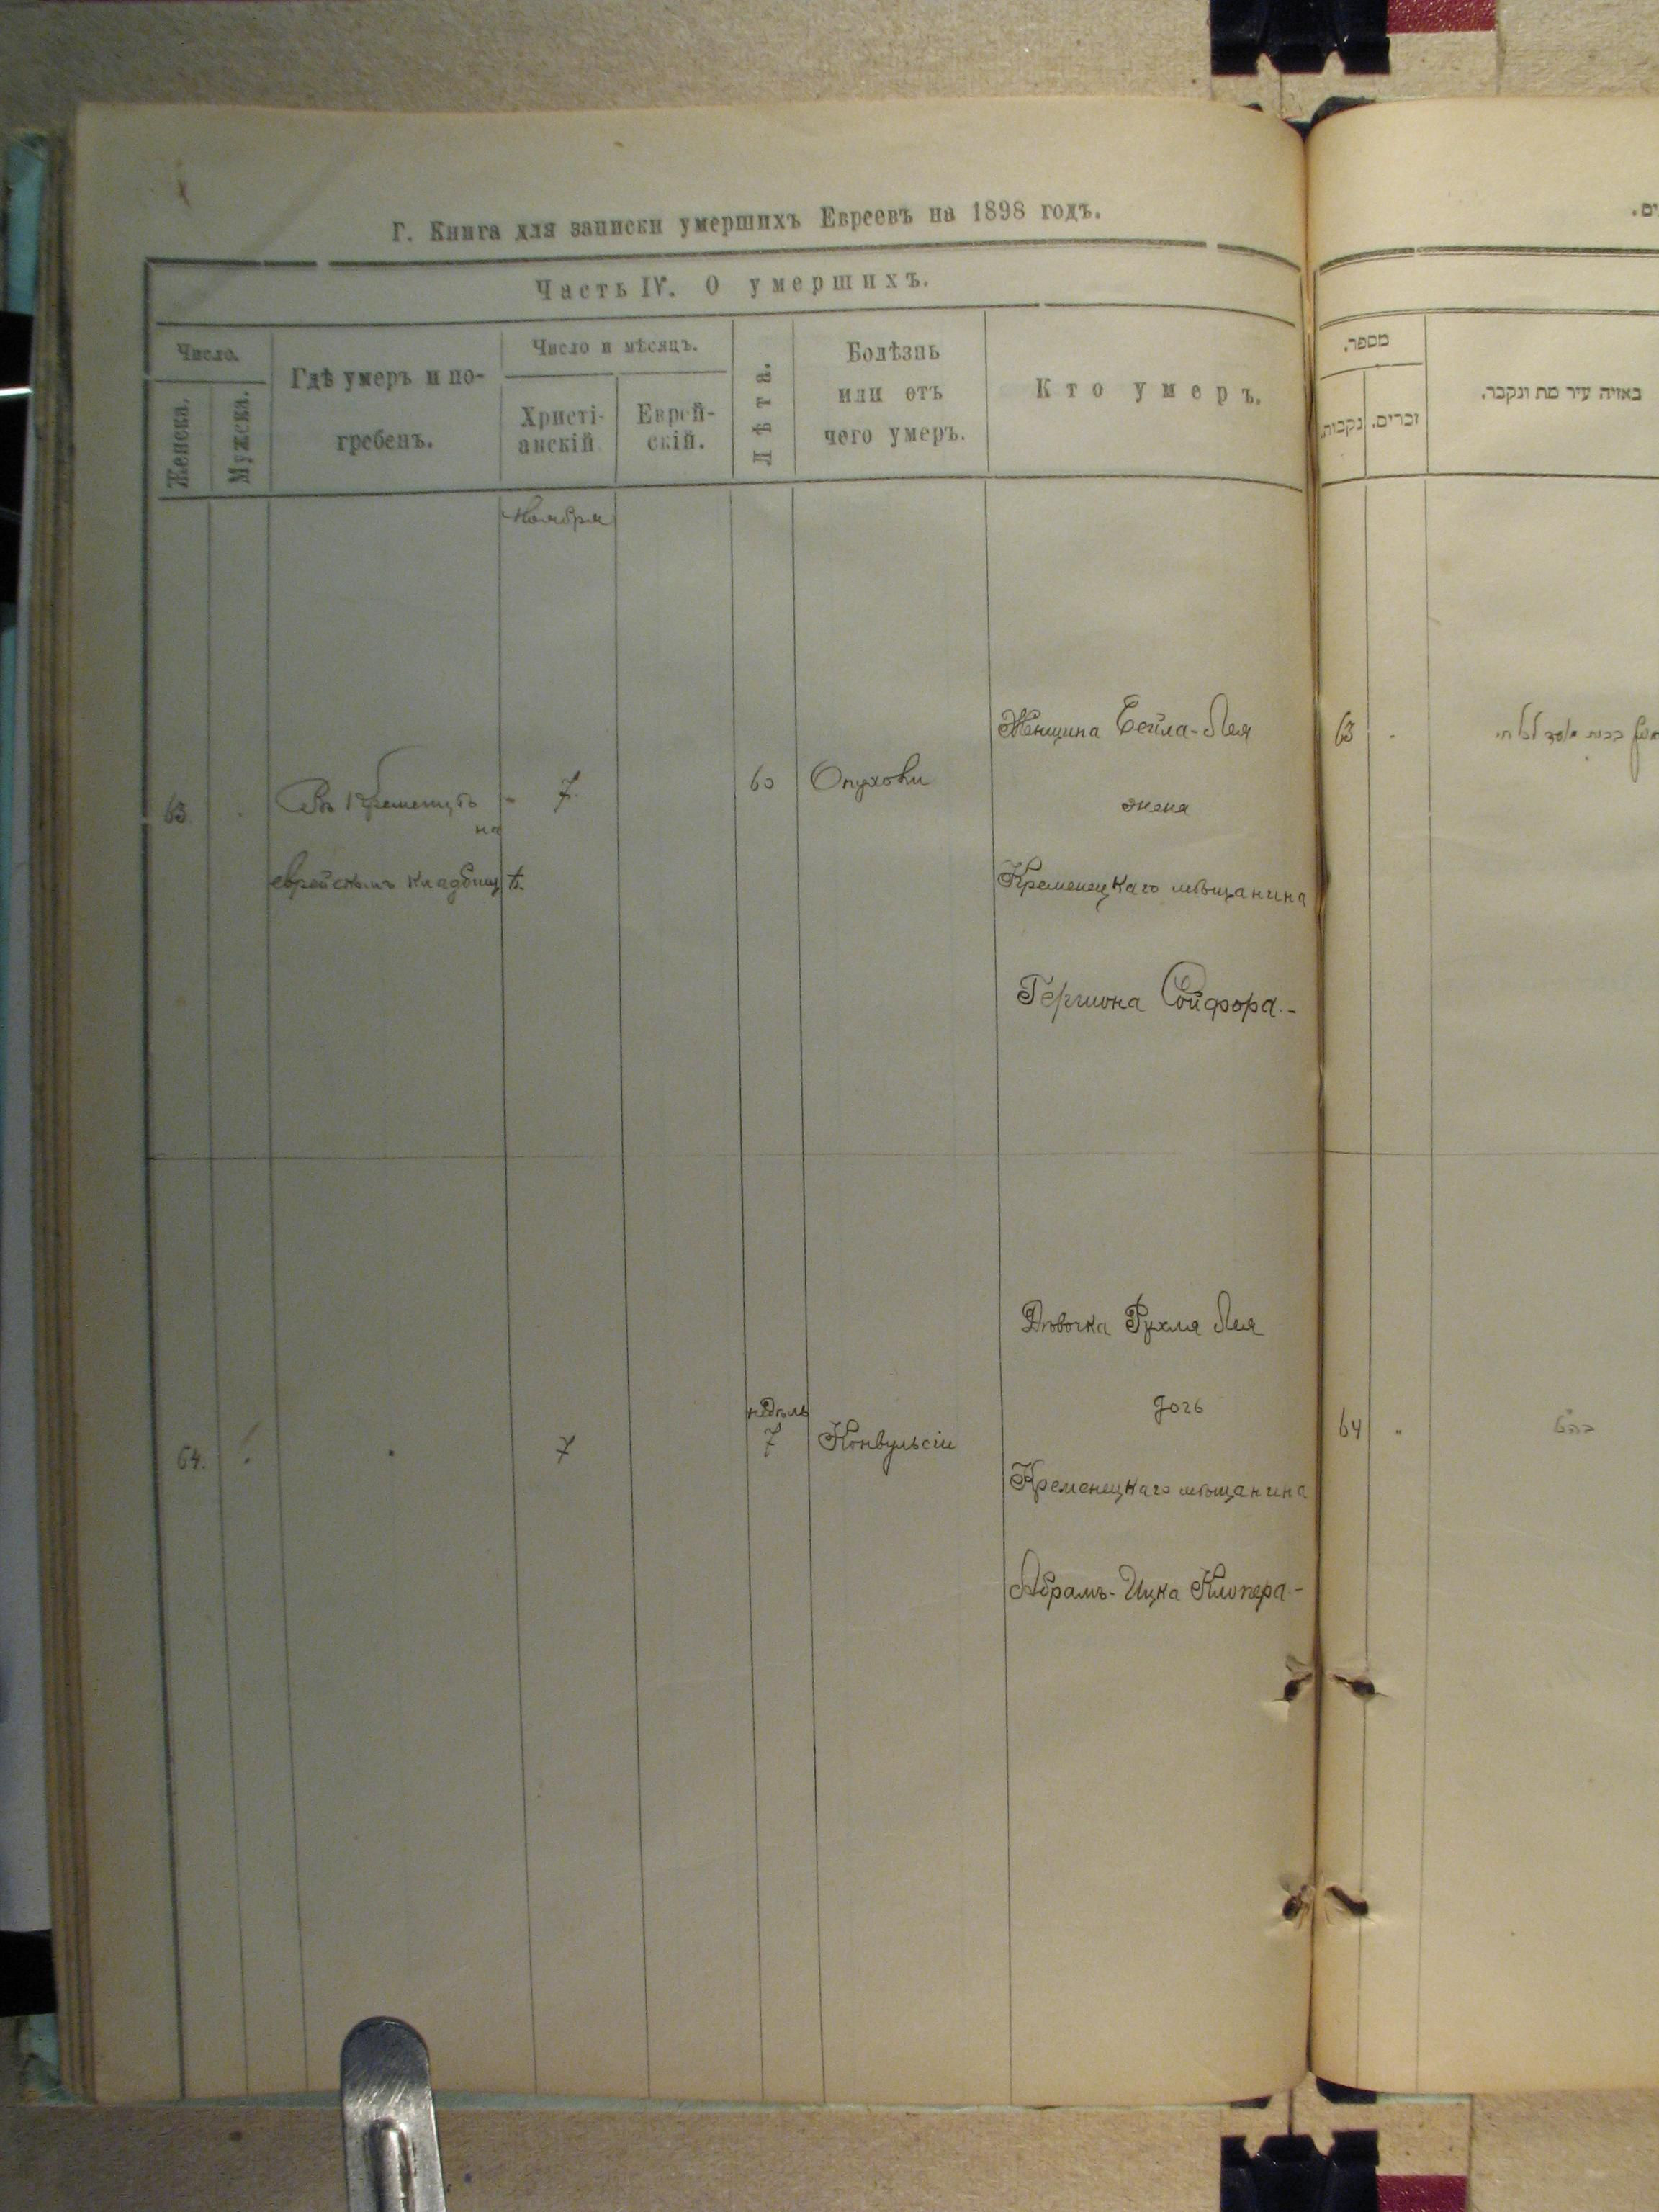 Г. Книга для записки умершихъ Евреевъ на 1898 годъ.
Часть IV. О умершихъ.
Число.
Женска.
Мужска.
Гдѣ умеръ и по-
гребенъ.
Число и мѣсяцъ.
Христі-
анскій
Еврей-
скій.
Лѣта.
Болѣзнь
или отъ
чего умеръ.
Кто умеръ.
Ноября
63
Въ Кременцѣ
на
еврейскомъ кладбищѣ.
7
60
Опухоли
Женщина Бейла-Лея
жена
Кременецкаго мѣщанина
Гершона Сойфора.-
64.
7
недѣль
7
Конвульсіи
Дѣвочка Рухля Лея
дочь
Кременецкаго мѣщанина
Абрамъ-Ицка Клопера.-
מספר.
נקבות.
זכרים.
באיזה עיר מת ונקבר.
63
64